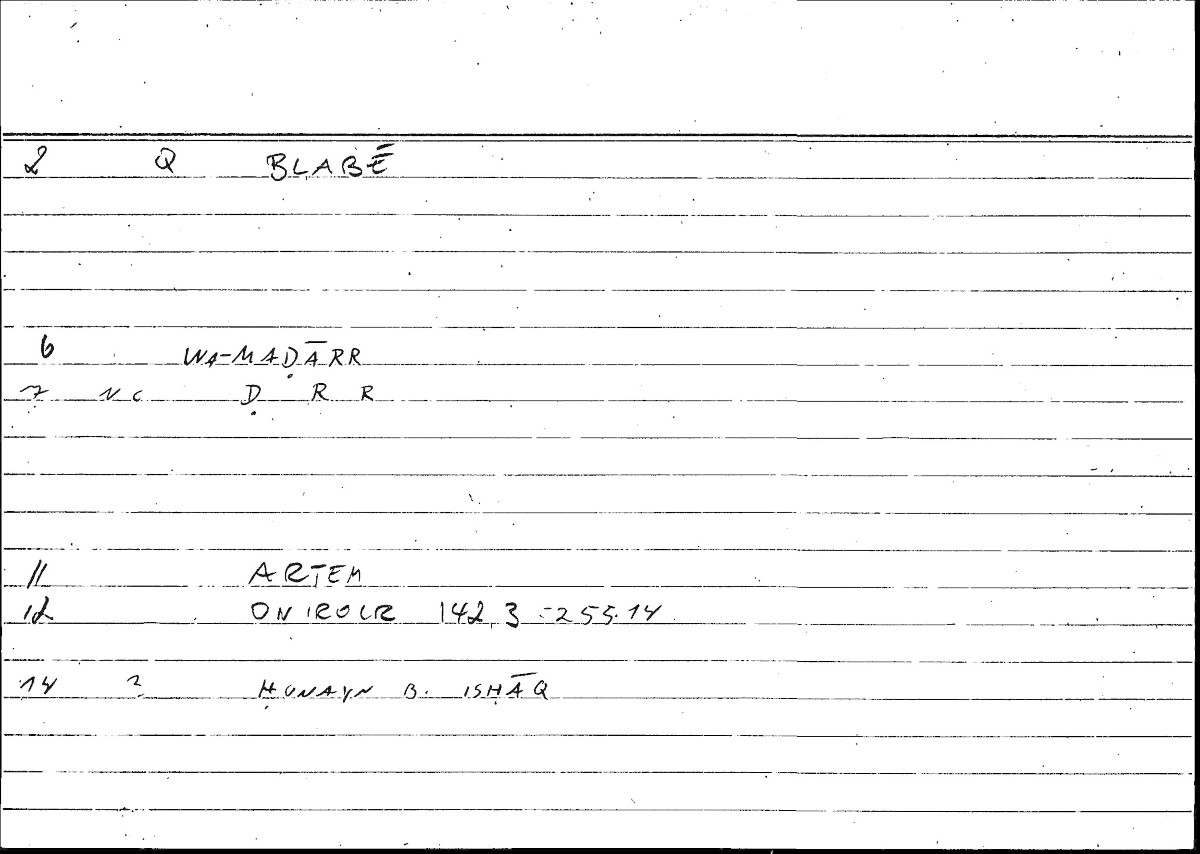 2 Q BLABḖ
6 WA-MAḌĀRR
7 NC Ḍ R R
11 ARTEM
12 ONIROCR 142,3 =255.14
14 2 ḤUNAYN B. ISḤĀQ